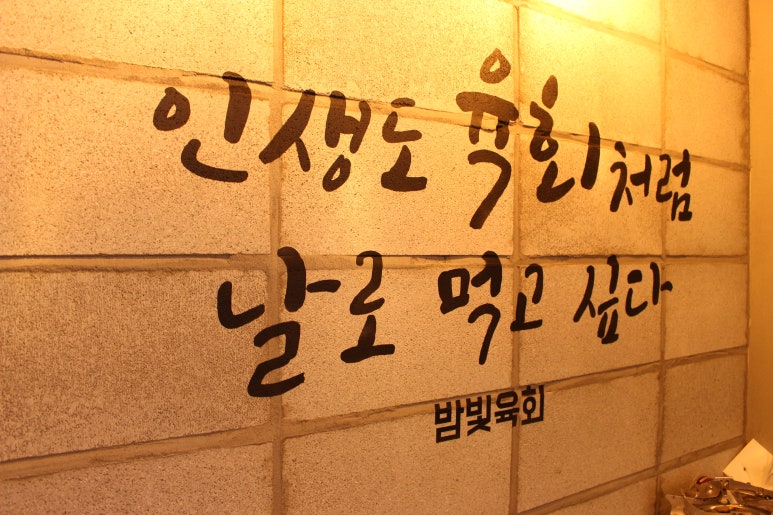 인생도 육회처럼
날로 먹고 싶다
밤빛육회